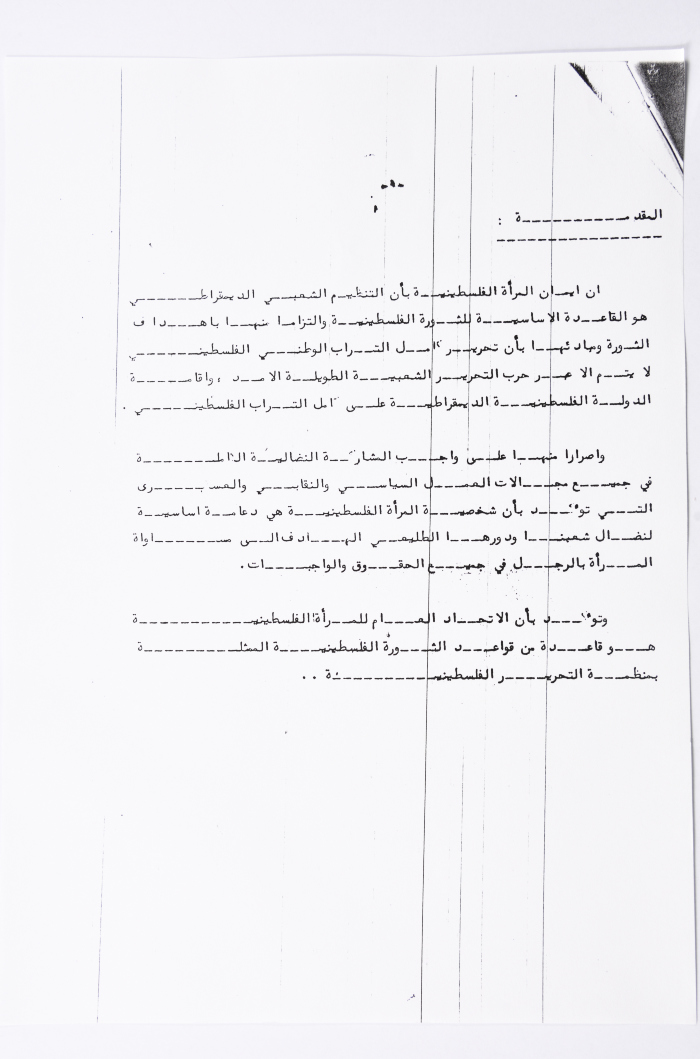 -١-
المقدمة :
ان ايمان المرأة الفلسطينية بأن التنظيم الشعبي الديمقراطي
هو القاعدة الاساسية للثورة الفلسطينية والتزاما منها باهداف
الثورة ومبادئها بأن تحرير كامل التراب الوطني الفلسطيني
لا يتم الا عبر حرب التحرير الشعبية الطويلة الامد ، واقامة
الدولة الفلسطينية الديمقراطية على كامل التراب الفلسطيني .
واصرارا منها على واجب المشاركة النضالية الكاملة
في جميع مجالات العمل السياسي والنقابي والعسكرى
التي تؤكد بأن شخصية المرأة الفلسطينية هي دعامة اساسية
لنضال شعبنا ودورها الطليعي الهادف الى مساواة
المرأة بالرجل في جميع الحقوق والواجبات .
وتؤكد بأن الاتحاد العام للمرأة الفلسطينية
هو قاعدة من قواعد الثورة الفلسطينية الممثلة
بمنظمة التحرير الفلسطينية . .